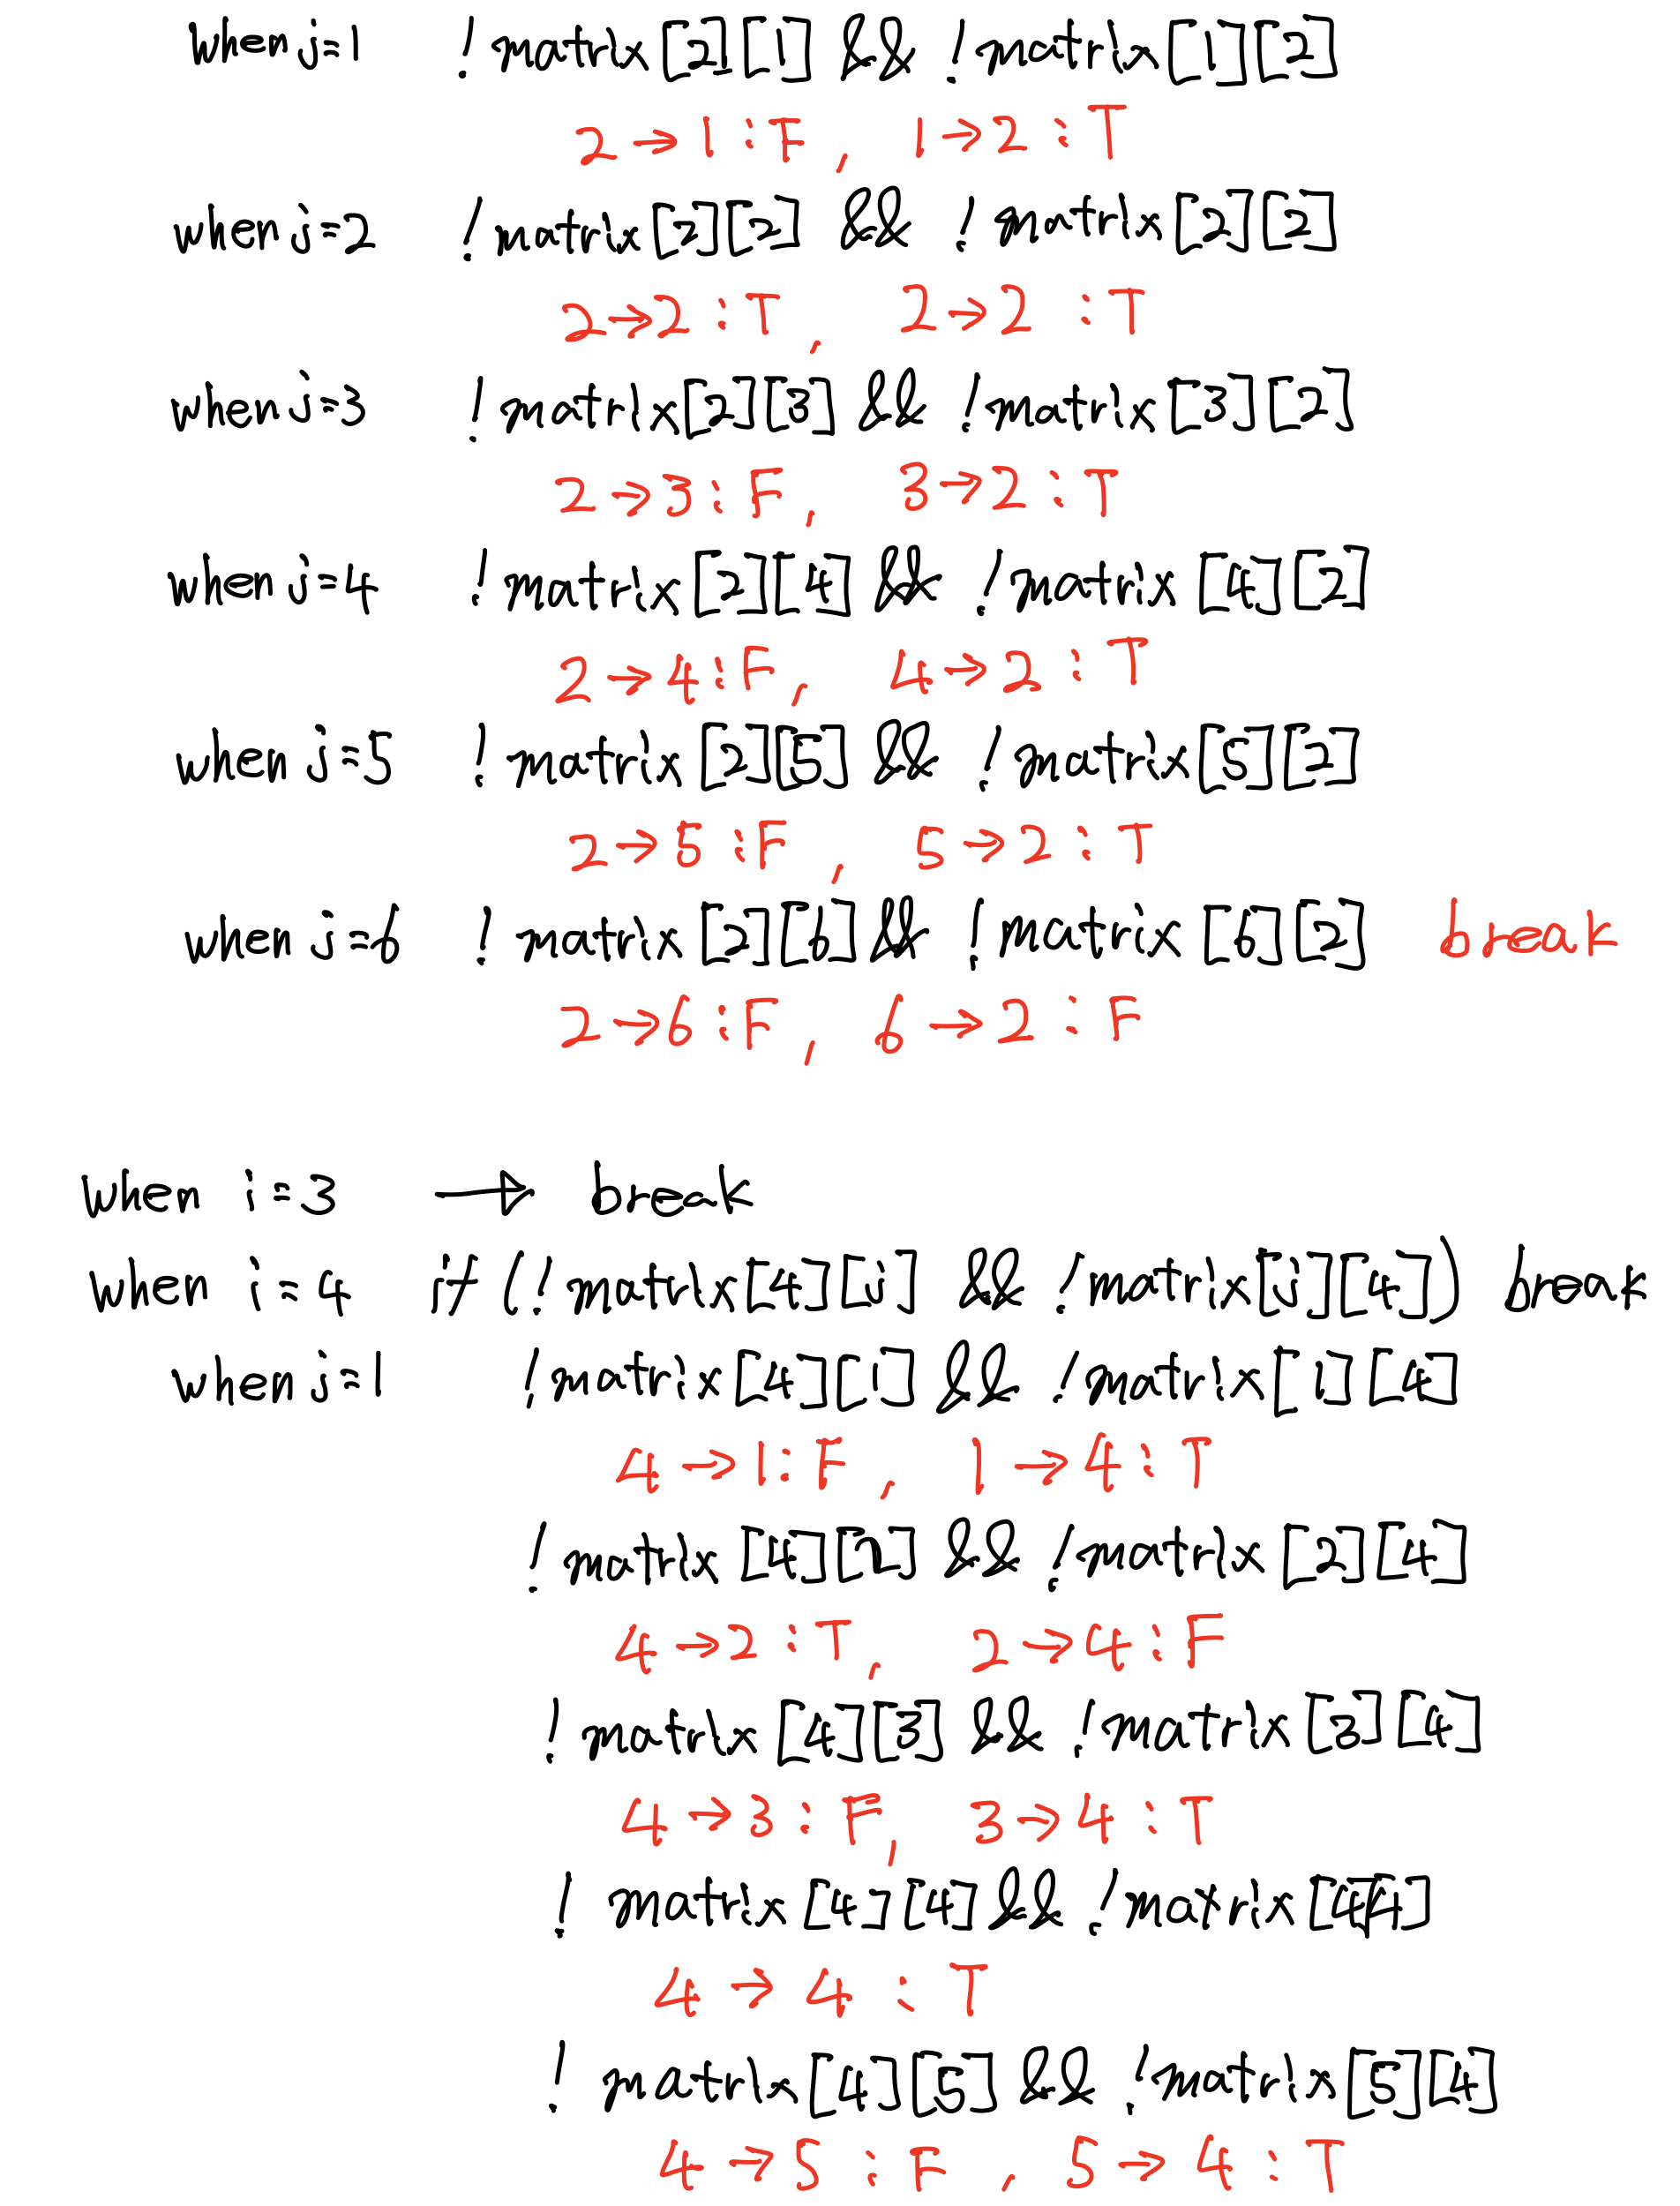 when j=1 !matrix[2][1] && !matrix[1][2]
2→1:F, 1→2:T
when j=2 !matrix[2][2] && !matrix[2][2]
2→2:T, 2→2:T
when j=3 !matrix[2][3] && !matrix[3][2]
2→3:F, 3→2:T
when j=4 !matrix[2][4] && !matrix[4][2]
2→4:F, 4→2:T
when j=5 !matrix[2][5] && !matrix[5][2]
2→5:F, 5→2:T
when j=6 !matrix[2][6] && !matrix[6][2] break
2→6:F, 6→2:F
when i=3 → break
when i=4 if(!matrix[4][j] && !matrix[j][4]) break
when j=1 !matrix[4][1] && !matrix[1][4]
4→1:F, 1→4:T
!matrix[4][2] && !matrix[2][4]
4→2:T, 2→4:F
!matrix[4][3] && !matrix[3][4]
4→3:F, 3→4:T
!matrix[4][4] && !matrix[4][4]
4→4:T
!matrix[4][5] && !matrix[5][4]
4→5:F, 5→4:T